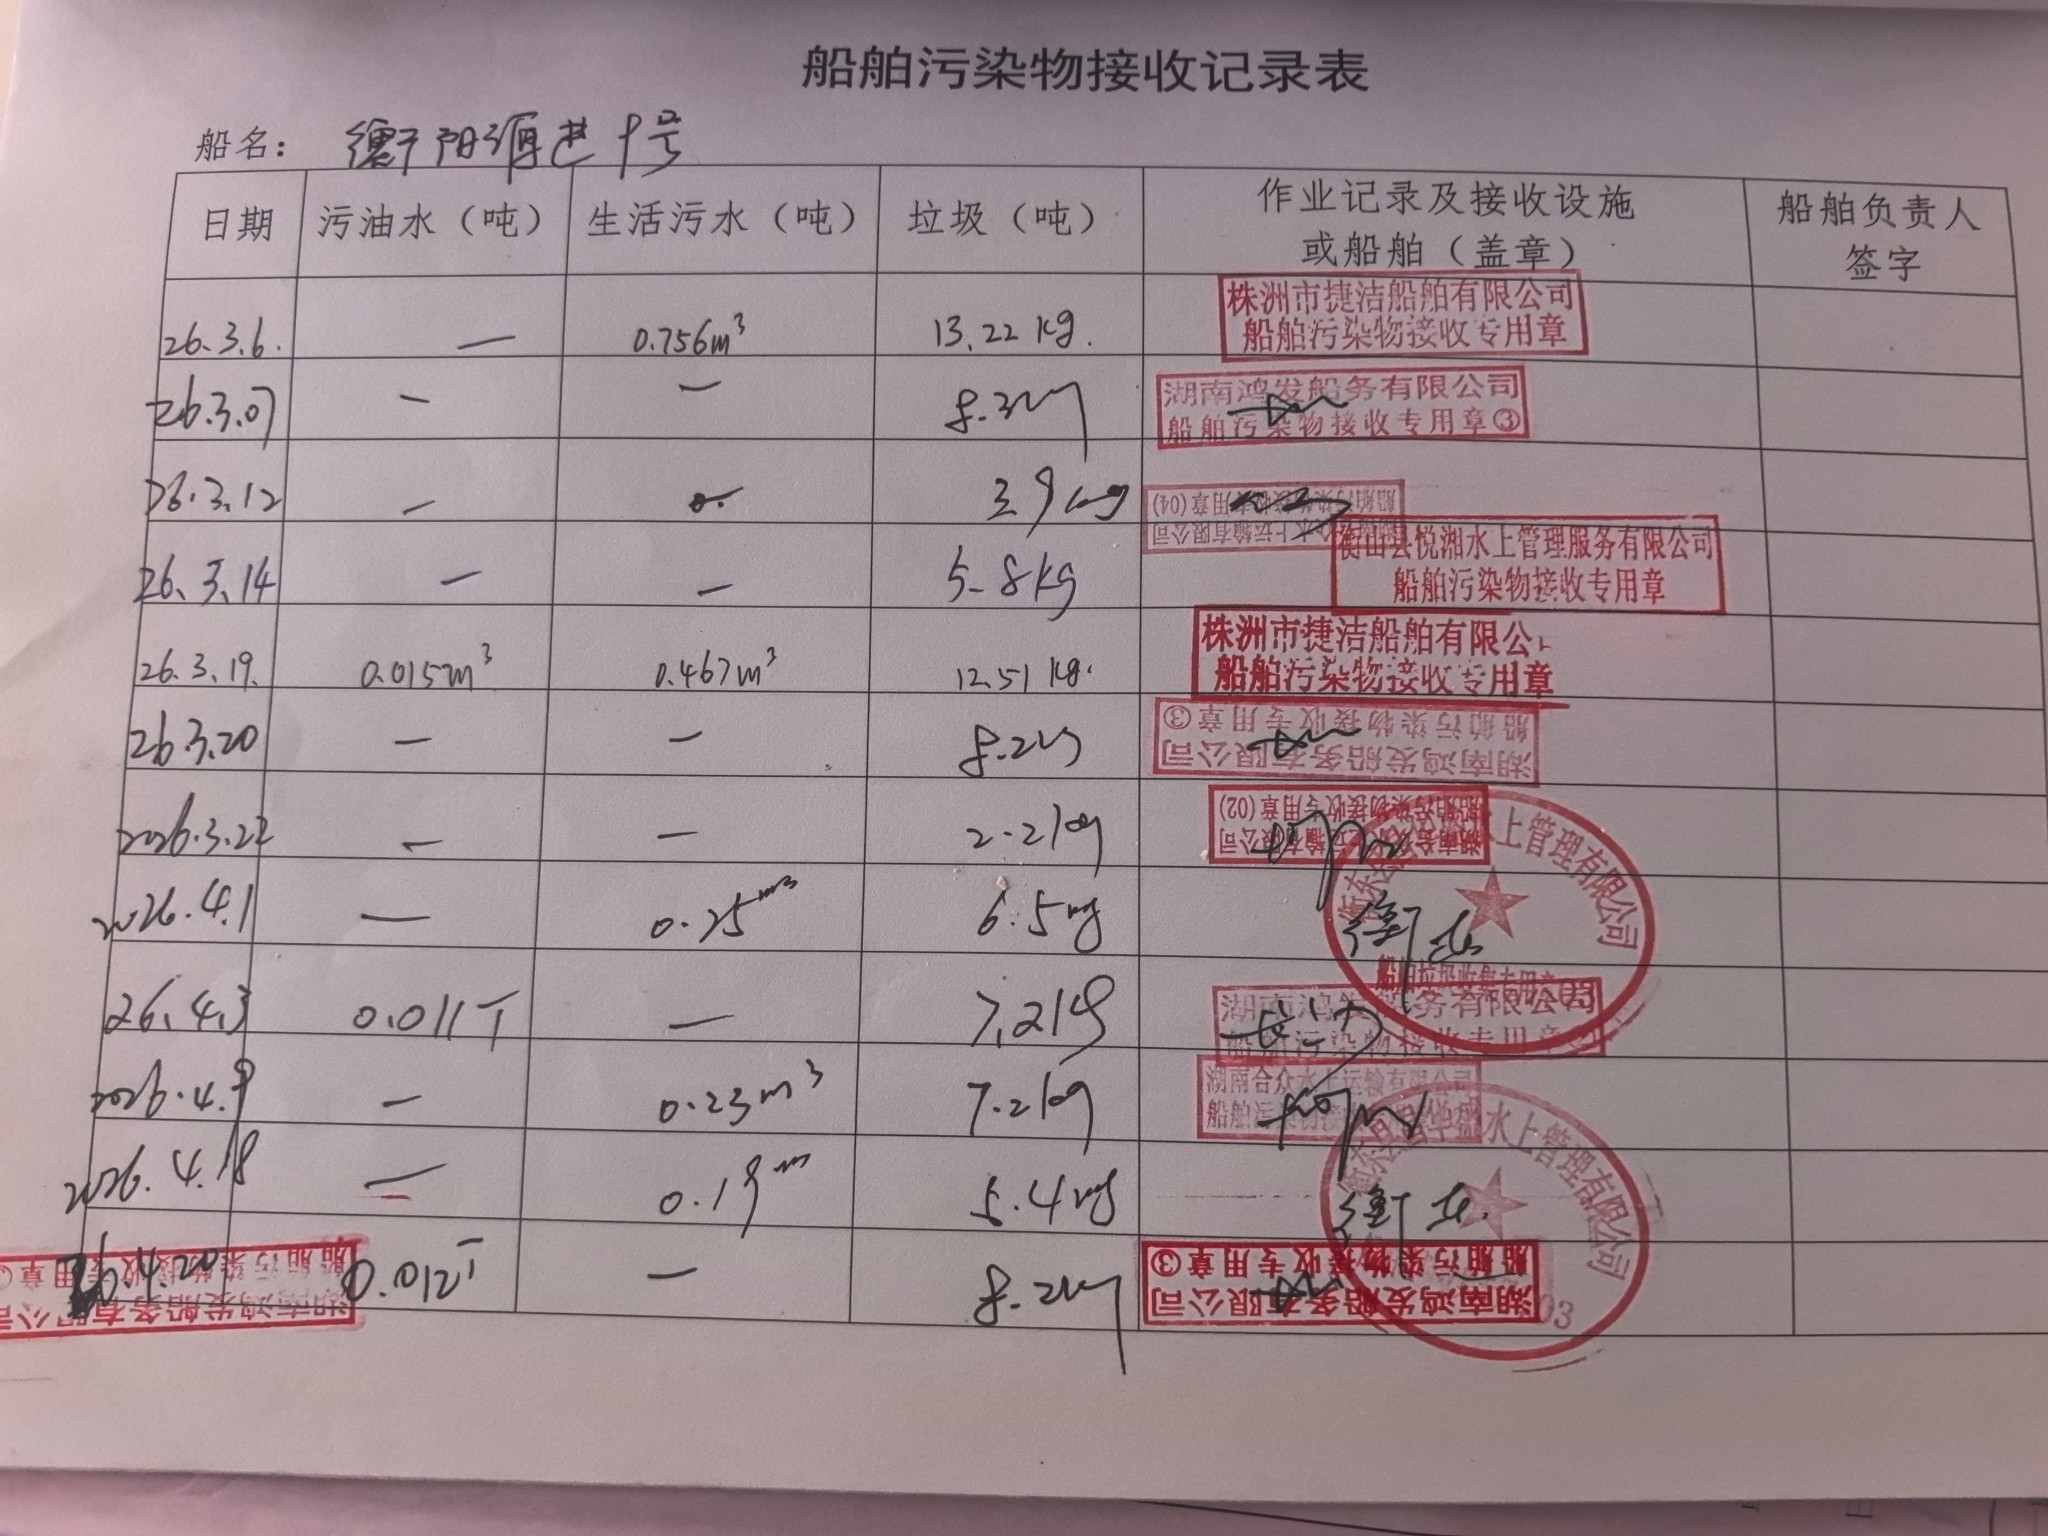 船舶污染物接收记录表
船名：衡阳 进 号
日期 污油水（吨） 生活污水（吨） 垃圾（吨） 作业记录及接收设施或船舶（盖章） 船舶负责人签字
26.3.6. — 0.756m³ 13.22 kg. 株洲市捷洁船舶有限公司
船舶污染物接收专用章
26.3.07 — — 8.3kg 湖南鸿发船务有限公司
船舶污染物接收专用章③
26.3.12 — 3.9kg 船舶污染物接收专用章(04)
水上运输有限公司
26.3.14 — — 5.8kg 衡山县悦湘水上管理服务有限公司
船舶污染物接收专用章
26.3.19. 0.015m³ 0.467m³ 12.51 kg. 株洲市捷洁船舶有限公
船舶污染物接收专用章
26.3.20 — — 8.2kg 湖南鸿发船务有限公司
船舶污染物接收专用章③
2026.3.22 — — 2.2kg 船舶污染物接收专用章(02)
2026.4.1 — m³ 6.5kg 水上管理有限公司
衡东
26.4.3 0.011T — 7.2kg 湖南鸿发船务有限公司
船舶污染物接收专用章
2026.4.9 — 0.23m³ 7.2kg 湖南合众水上运输有限公司
船舶污染物接
2026.4.18 — 0.19m 5.4kg 水上管理有限公司
衡东
26.4.20 0.012T — 8.2kg 湖南鸿发船务有限公司
船舶污染物接收专用章③
03